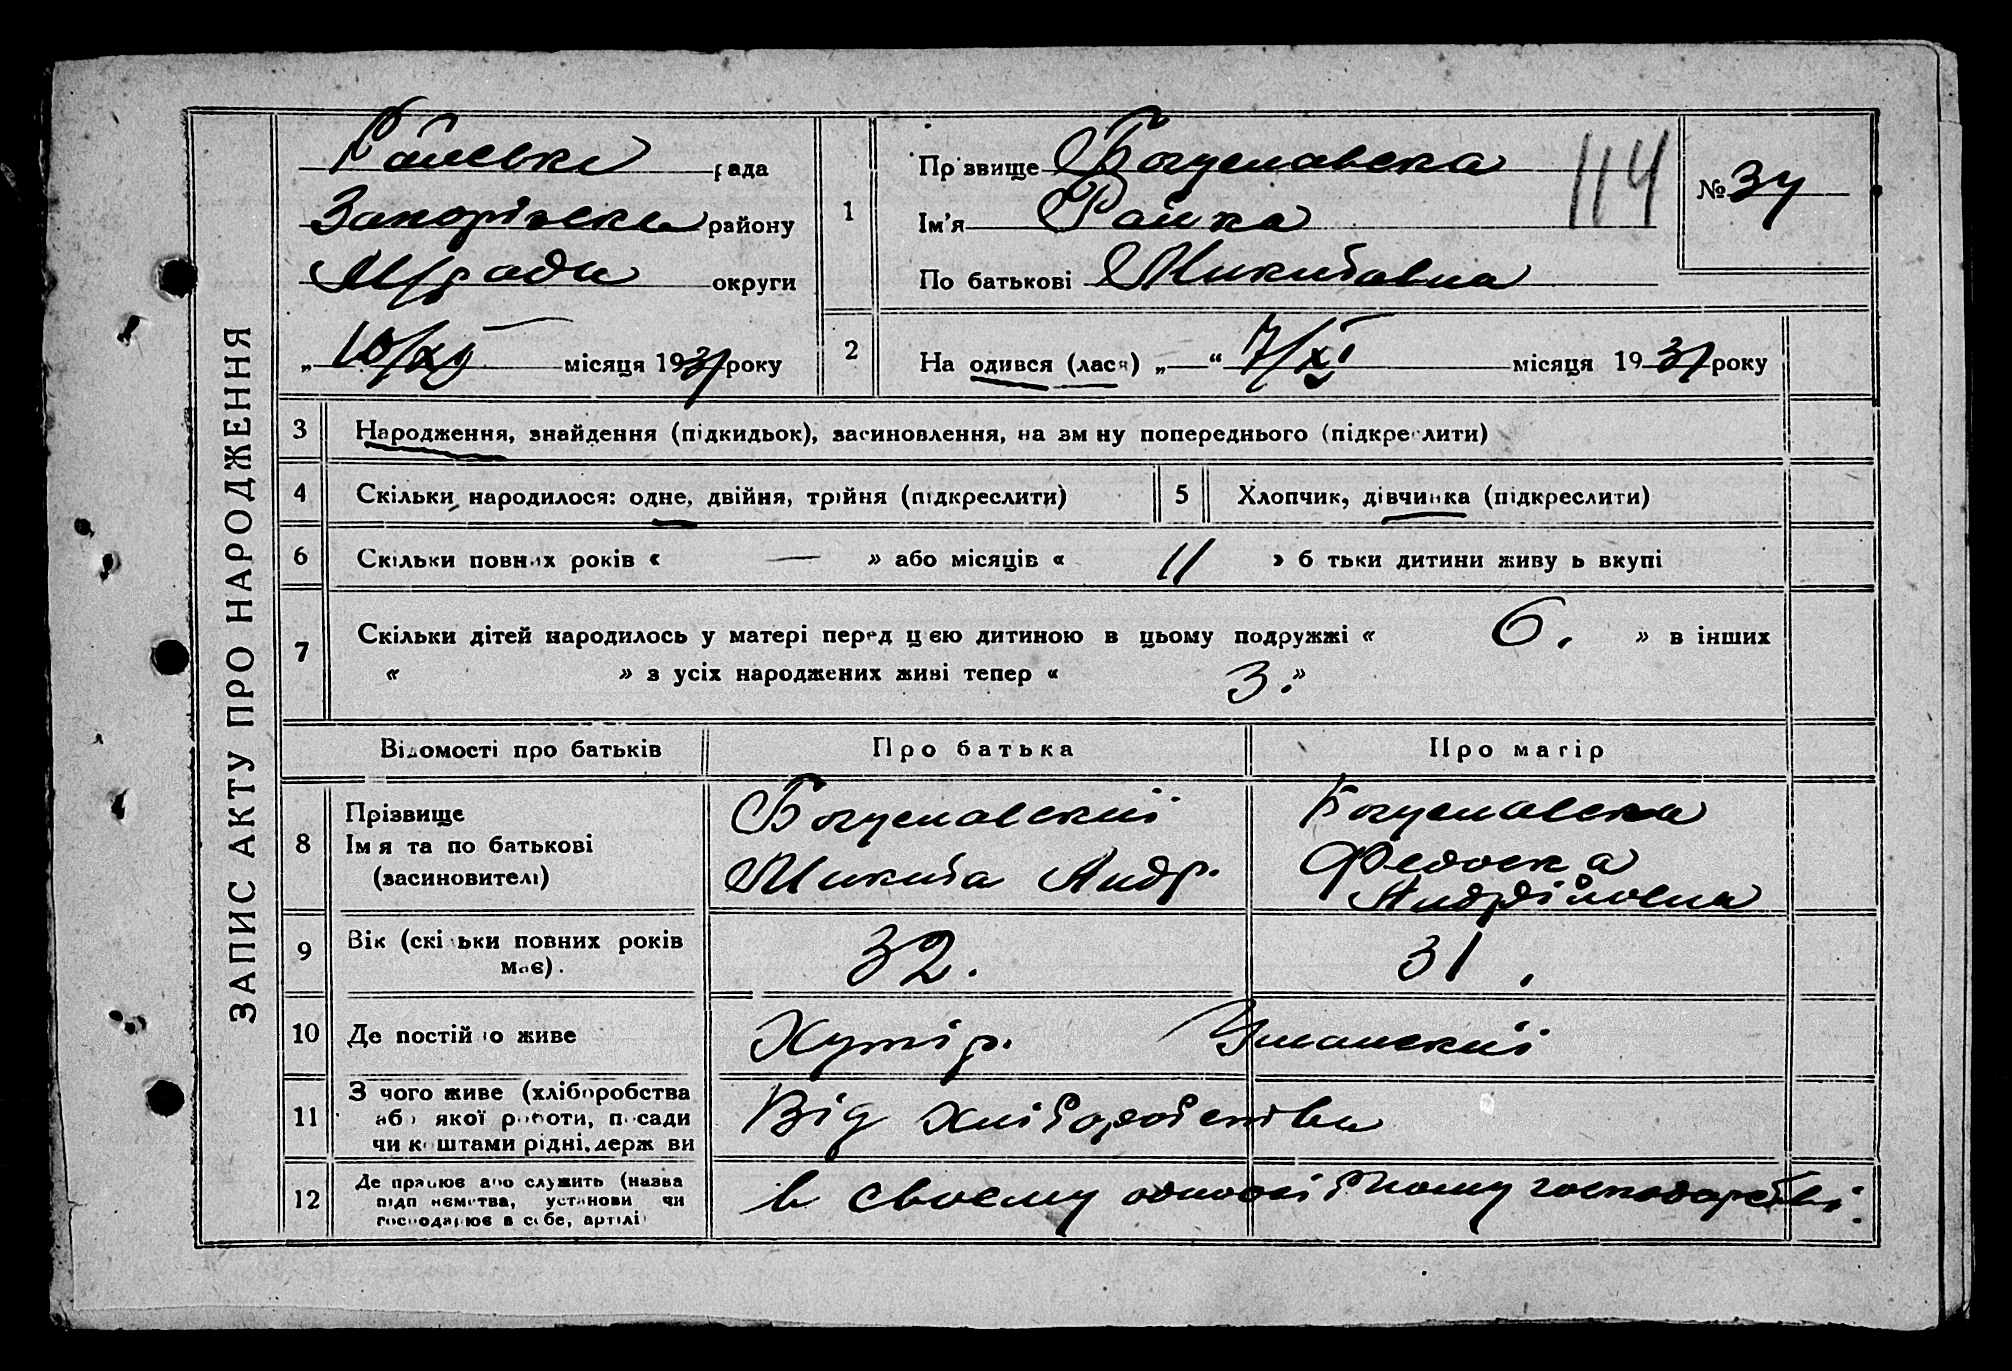 ЗАПИС АКТУ ПРО НАРОДЖЕННЯ
рада
району
округи
„ 10/XI місяця 1931 року
1
Прізвище Богуславська
Ім'я Раїка
По батькові Микитовна
114
№ 34
2
На одився (лася) „—“ 7/XI місяця 1931 року
3 Народження, знайдення (підкидьок), засиновлення, на зм ну попереднього (підкреслити)
4 Скільки народилося: одне, двійня, трійня (підкреслити)
5 Хлопчик, дівчинка (підкреслити)
6 Скільки повних років « — » або місяців « 11 » б тьки дитини живу ь вкупі
7 Скільки дітей народилось у матері перед цією дитиною в цьому подружжі « 6. » в інших
« » з усіх народжених живі тепер « 3. »
Відомості про батьків
Про батька
Про матір
8 Прізвище
Імя та по батькові
(засиновителі)
Богуславский
Микита Андр.
Богуславска
Федоска
9 Вік (скільки повних років
має).
32.
31.
10 Де постій о живе
Хутір. Уманский
11 З чого живе (хліборобства
або якої роботи, посади
чи коштами рідні, держ ви
Від хліборобства
12 Де працює або служить (назва
підп иємства, установи чи
господарює в себе, артілі
в своему одноосібному господарстві.